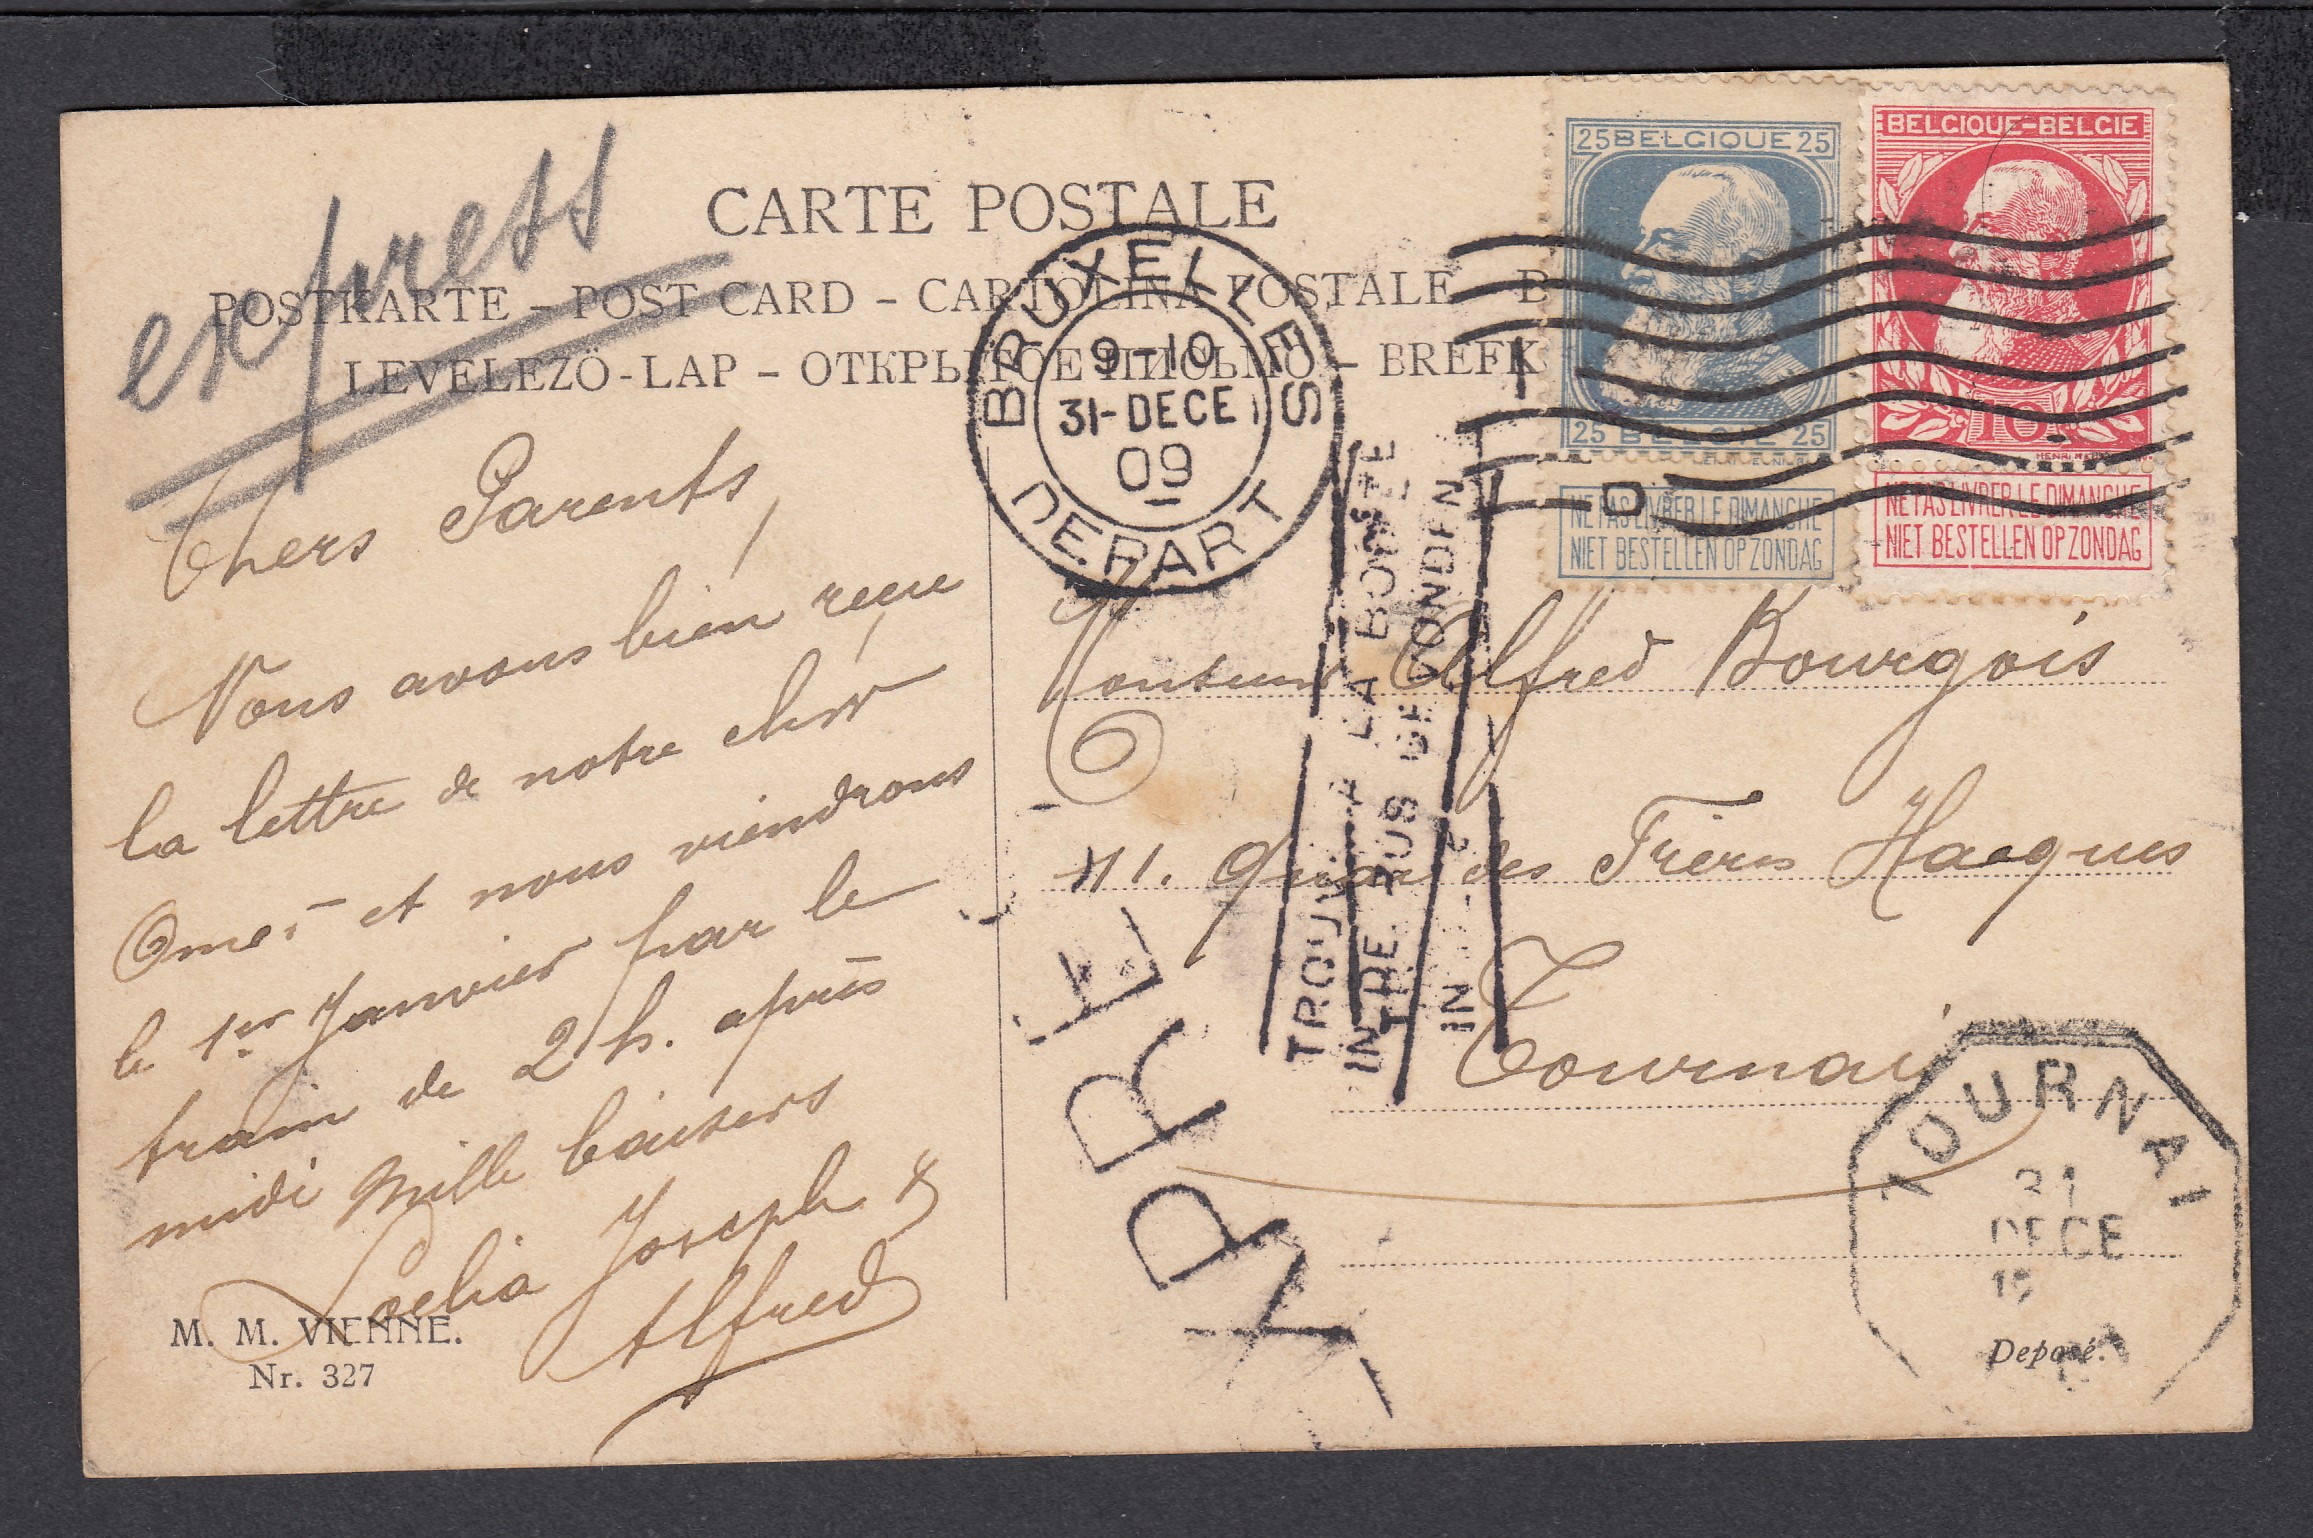 express
CARTE POSTALE
POSTKARTE – POST CARD – CARTOLINA POSTALE B
LEVELEZÖ-LAP – ОТКРЫТОЕ ПИСЬМО – BREFK
BRUXELLES
9-10
31-DECE
09
DEPART
25 BELGIQUE 25
25 BELGIE 25
NE PAS LIVRER LE DIMANCHE
NIET BESTELLEN OP ZONDAG
BELGIQUE-BELGIE
10
NE PAS LIVRER LE DIMANCHE
NIET BESTELLEN OP ZONDAG
Chers Parents,
Nous avons bien reçu
la lettre de notre cher
Omer et nous viendrons
le 1er Janvier par le
train de 2 h. après
midi Mille baisers
Joseph &
Alfred
M. M. VIENNE.
Nr. 327
Monsieur Alfred Bourgois
41. Quai des Frères Haeques
Tournai
TROUVÉ A LA BOITE
IN DE BUS GEVONDEN
EXPRE
TOURNAI
31
DECE
Deposé.